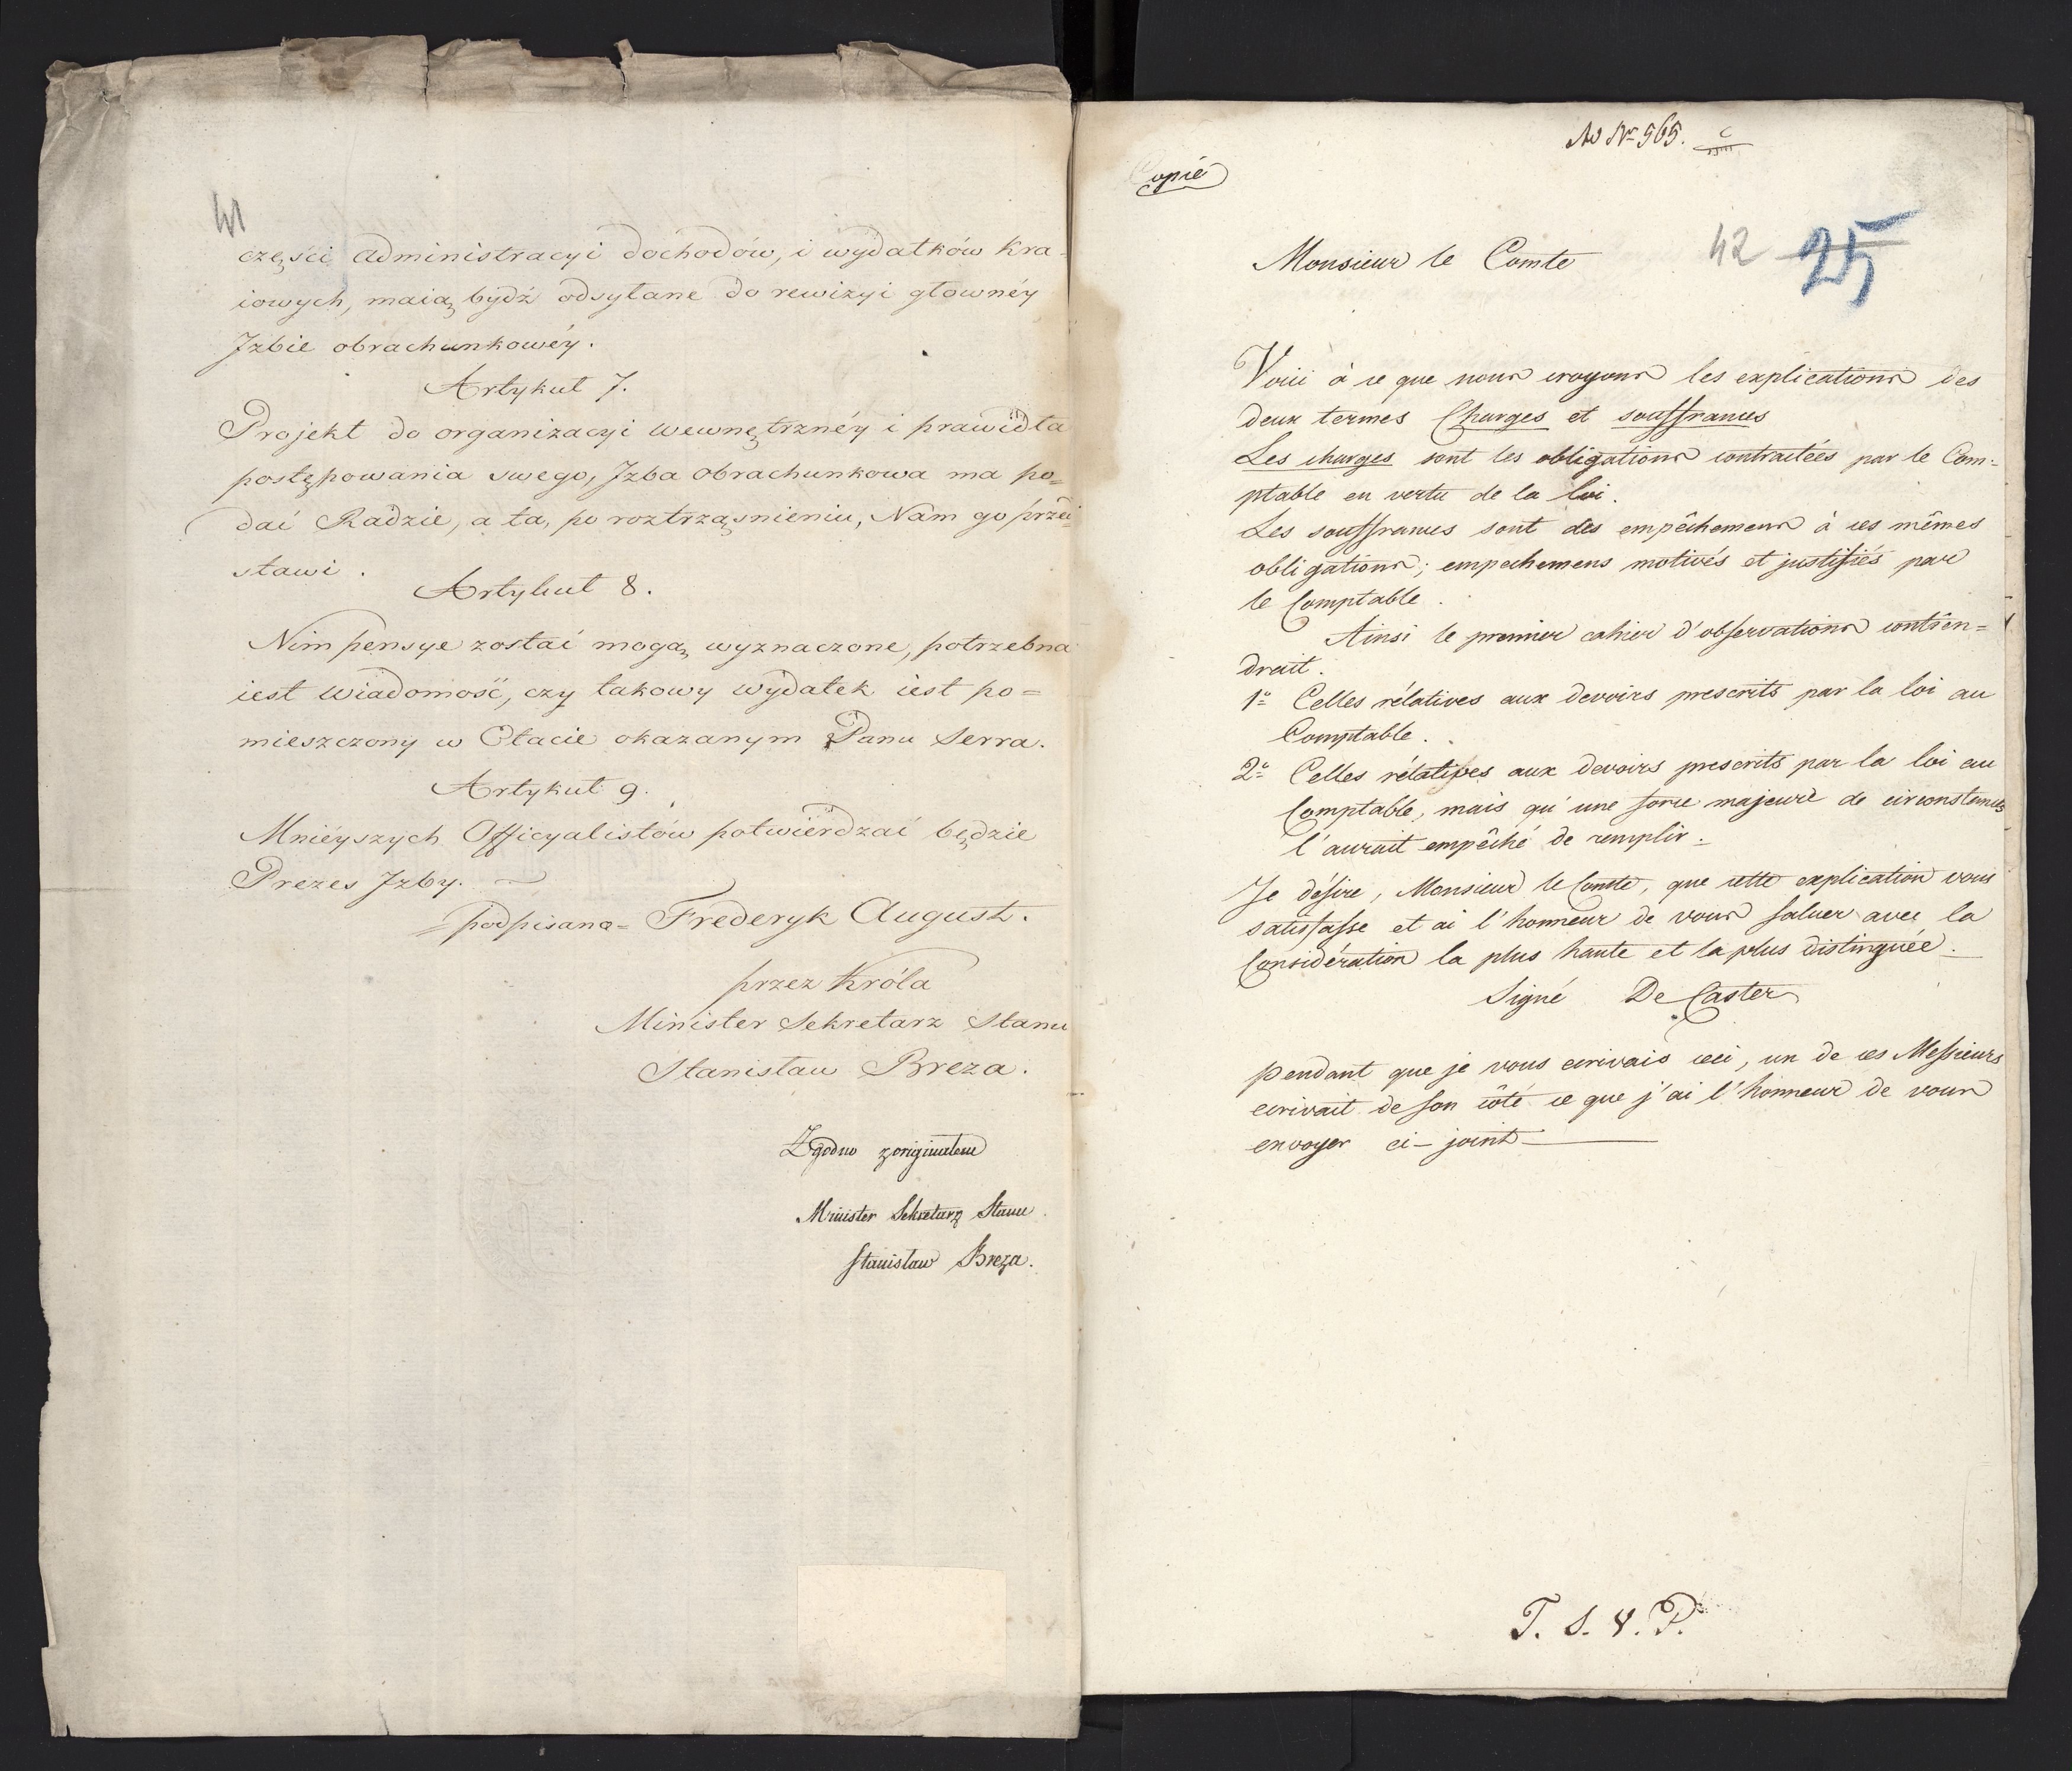 41
części administracyi dochodów, i wydatków kra-
iowych, maią bydź odsyłane do rewizyi główney
Jzbie obrachunkowéy.
Artykuł 7.
Projekt do organizacyi wewnętrznéy i prawidła
postępowania swego, Jzba obrachunkowa ma po=
dać Radzie, a ta, po roztrząśnieniu, Nam go przed
stawi.
Artykuł 8.
Nim pensye zostać mogą wyznaczone, potrzebna
iest wiadomość, czy takowy wydatek iest po=
mieszczony w Etacie okazanym Panu Serra.
Artykuł 9.
Mniéyszych Officyalistów potwiérdzać będzie
Prezes Jzby.
=podpisano= Frederyk August.
przez Króla
Minister Sekretarz Stanu
Stanisław Breza.
Zgodno z originałem
Minister Sekretarz Stanu
Stanisław Breza.
Ad Nr 565.
Copié
42 25
Monsieur le Comte
Voici à ce que nous croyons les explications des
deux termes Charges et souffrances
Les charges sont les obligations contractées par le Com=
ptable en vertu de la loi.
Les souffrances sont des empêchemens à ces mêmes
obligations; empechemens motivés et justifiés par
le Comptable.
Ainsi le premier cahier d'observations contien=
drait.
1° Celles rélatives aux devoirs prescrits par la loi au
Comptable.
2° Celles rélatives aux devoirs prescrits par la loi au
Comptable, mais qu'une force majeure de circonstances
l'aurait empêché de remplir.
Je désire, Monsieur le Comte, que cette explication vous
satisfasse et ai l'honneur de vous saluer avec la
Considération la plus haute et la plus distinguée.
Signé De Caster
pendant que je vous ecrivais ceci, un de ces Messieurs
ecrivait de son côté ce que j'ai l'honneur de vous
envoyer ci-joint
T. S. V. P.